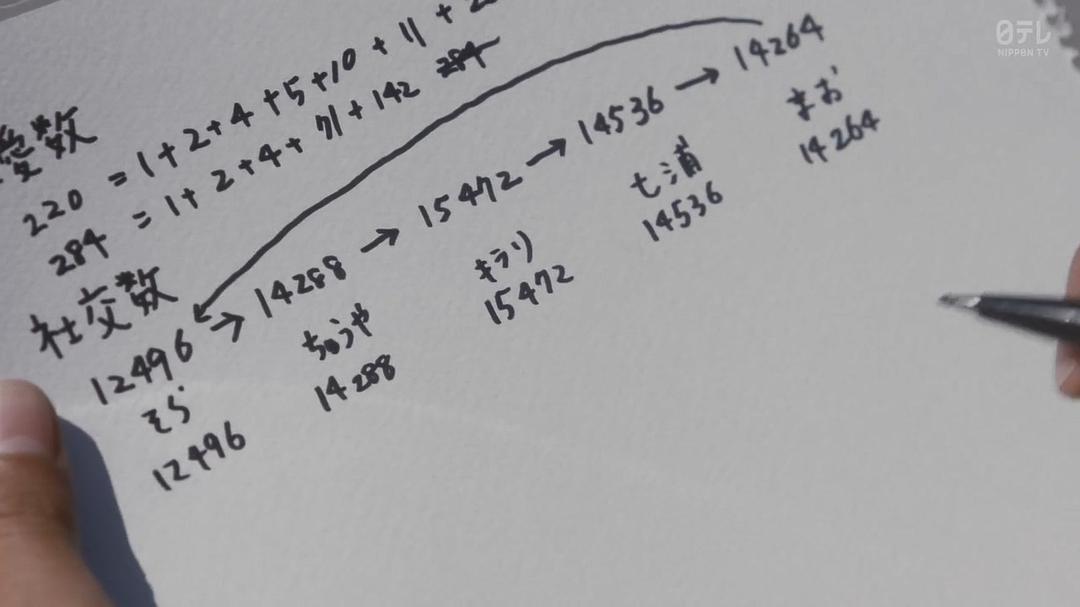 日テレ
NIPPON TV
愛数
220 = 1+2+4+5+10+11+2
284 = 1+2+4+71+142 284
社交数
12496 → 14288 → 15472 → 14536 → 14264
そら ちゅうや キラリ 七浦 まお
12496 14288 15472 14536 14264